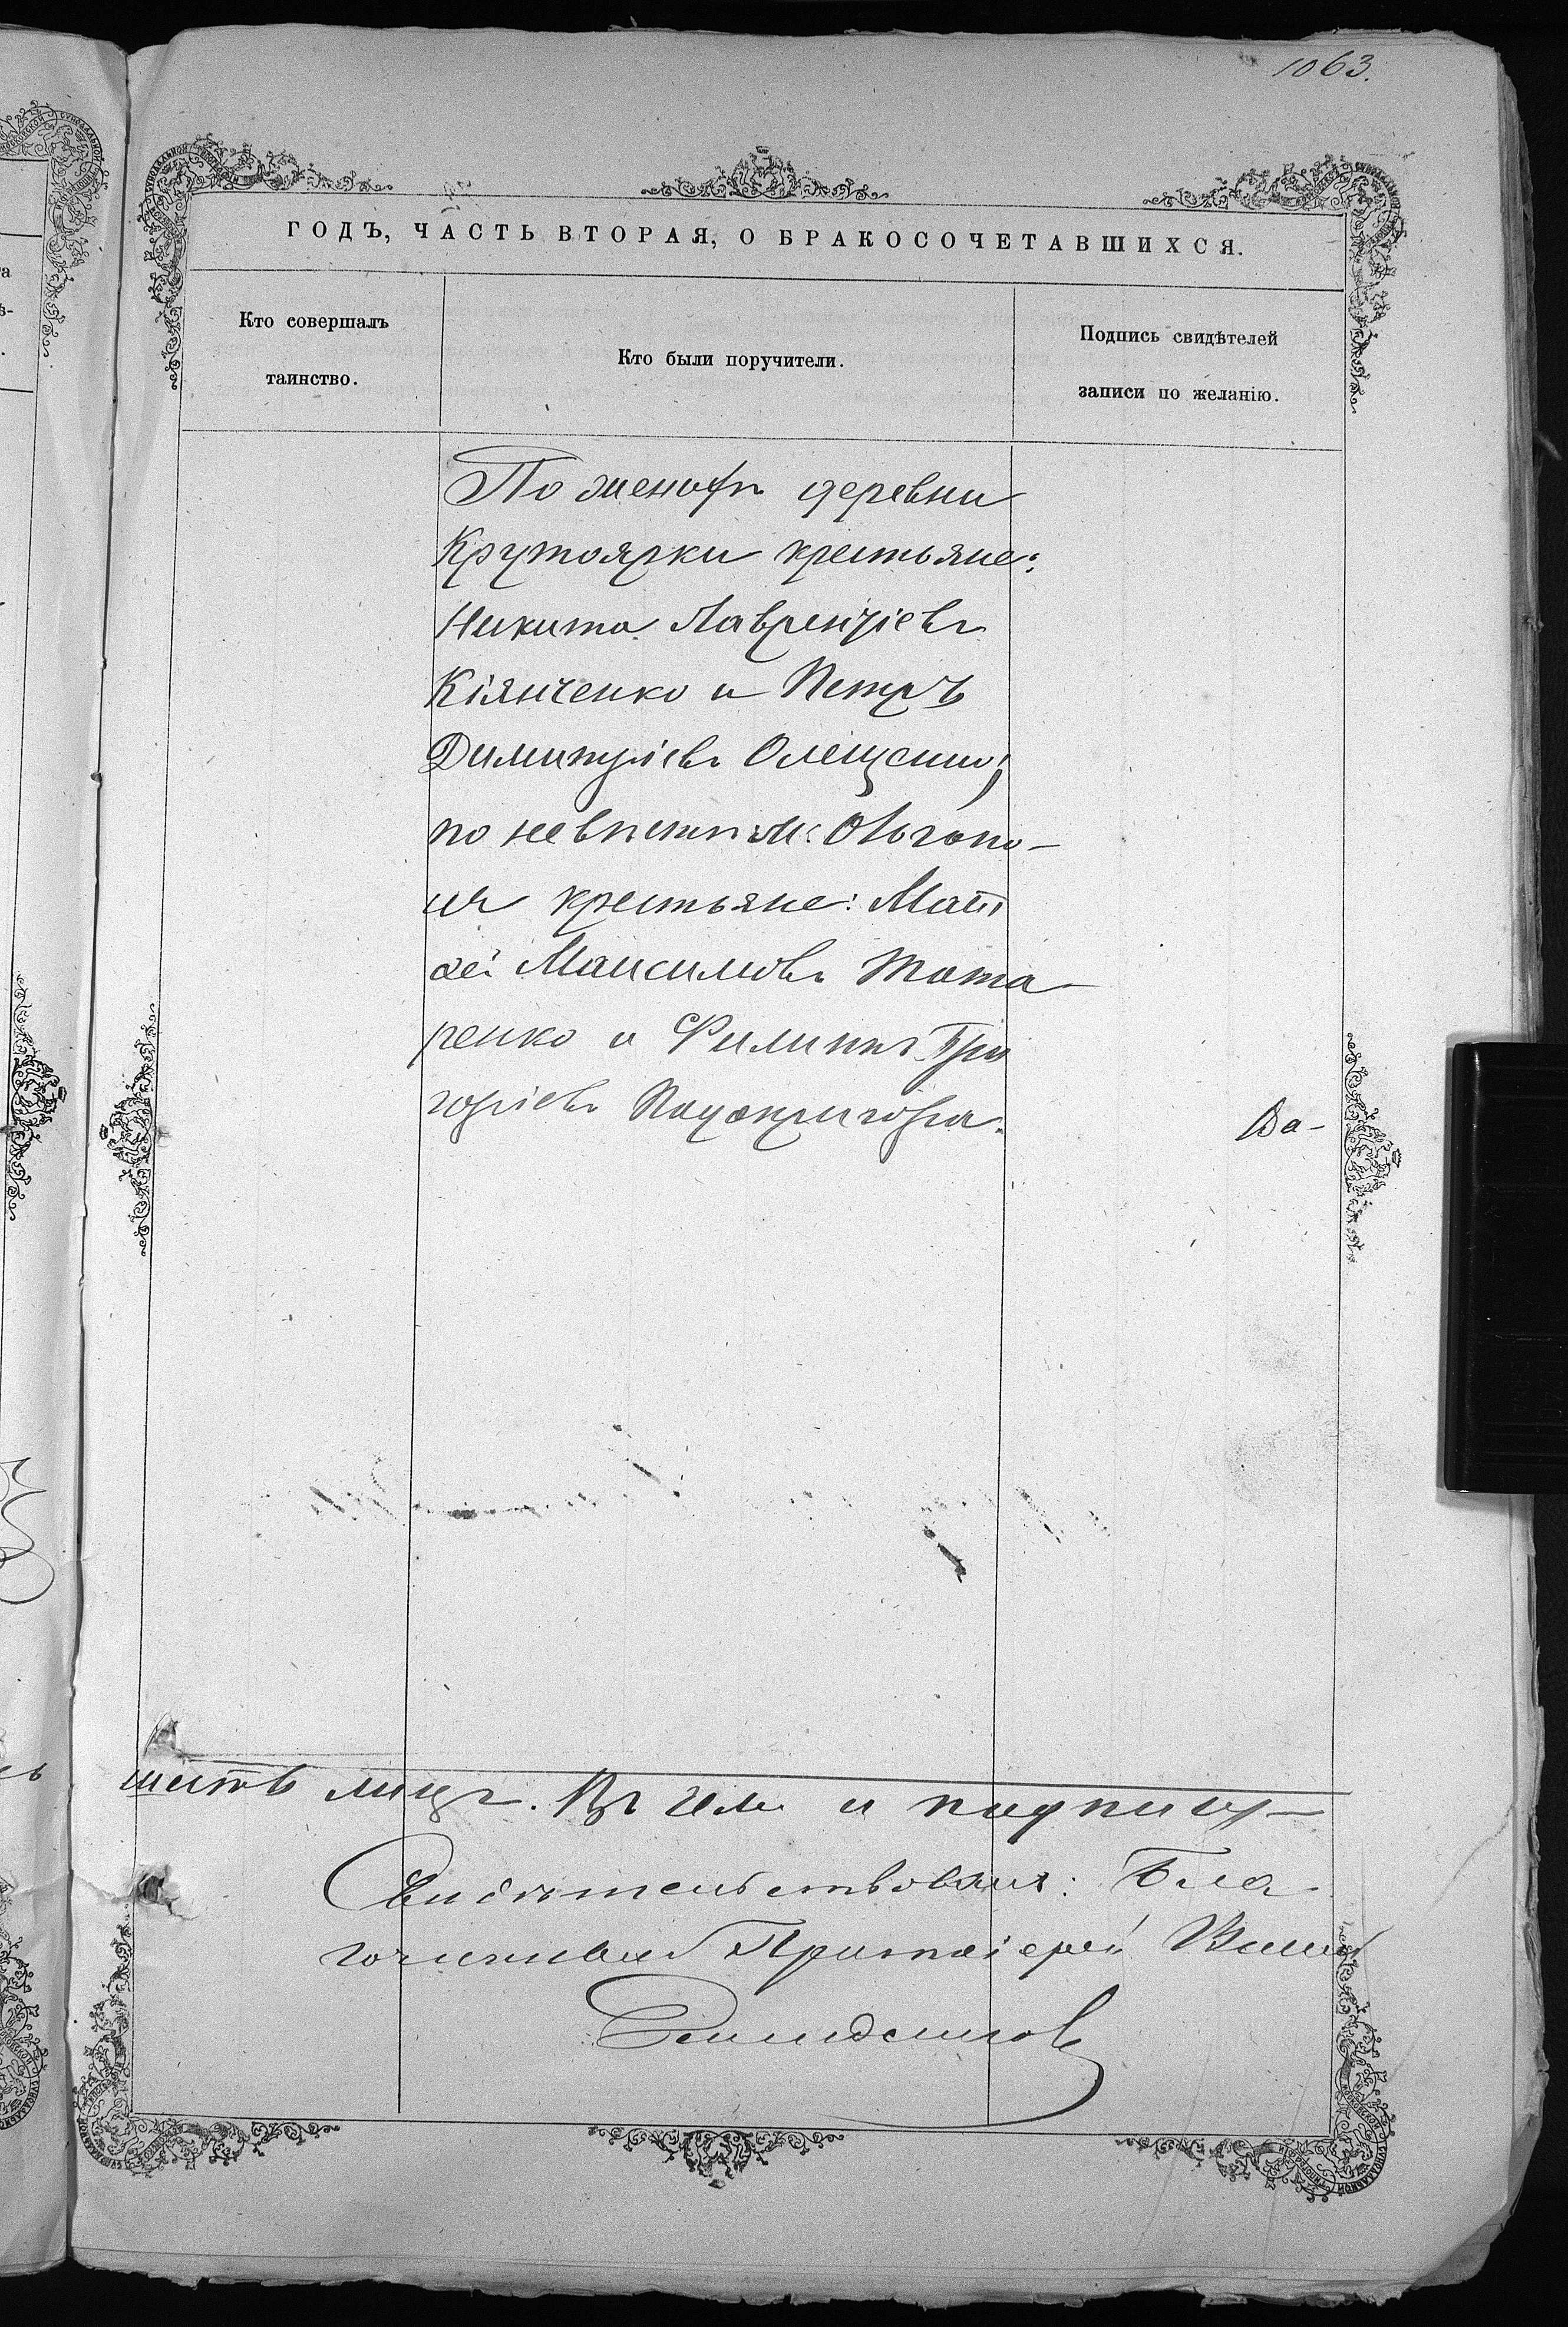 1063.
ГОДЪ, ЧАСТЬ ВТОРАЯ, О БРАКОСОЧЕТАВШИХСЯ.
Кто совершалъ
таинство.
Кто были поручители.
Подпись свидѣтелей
записи по желанію.
По женихѣ деревни
Крутоярки крестьяне:
Никита Лаврентіевъ
Кіянченко и Петръ
Димитріевъ
по невѣстѣ м:
крестьяне: Матѳ
ей Максимовъ Тата
ренко и Филиппъ Гри
горіевъ
Ва-
шесть лицъ. Въ чем и подпису-
Свидѣтельствовалъ: Бла
гочинный Протоіерей